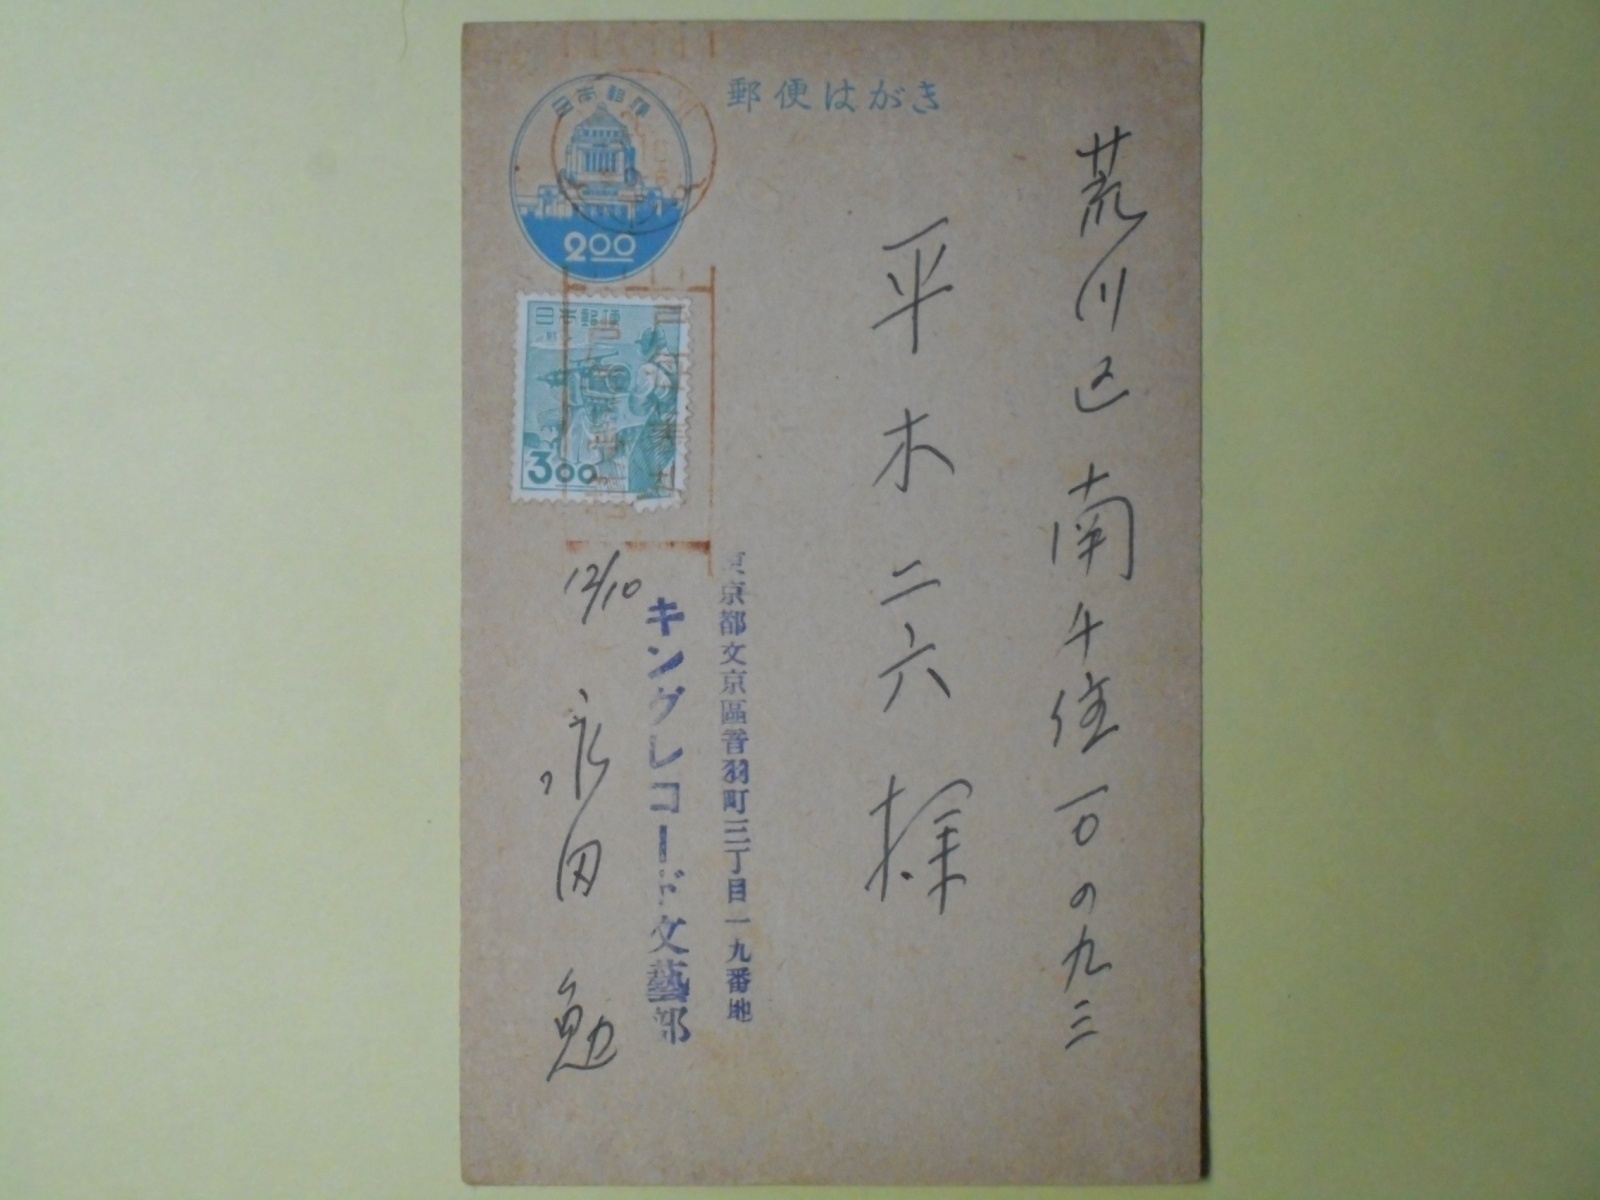 郵便はがき
日本郵便
2.00
日本郵便
3.00
荒川区南千住一〇の九三
平木二六様
東京都文京區音羽町三丁目一九番地
キングレコード文藝部
12/10
永田勉